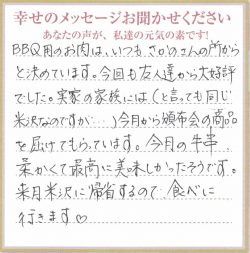 幸せのメッセージお聞かせください
あなたの声が、私達の元気の素です!
BBQ用のお肉は、いつも、さかのさんの所から
と決めています。今回も友人達から大好評
でした。実家の家族には(と言っても同じ
米沢なのですが…)今月から頒布会の商品
を届けてもらっています。今月の牛串、
柔かくて最高に美味しかったそうです。
来月米沢に帰省するので、食べに
行きます♡